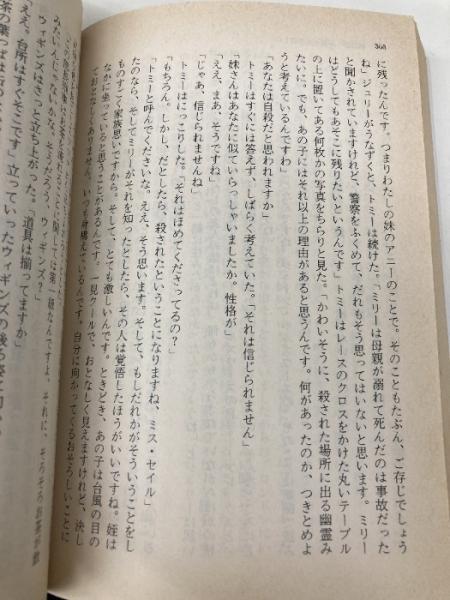 368
に残ったんです。つまりわたしの妹のアニーのことで。そのこともたぶん、ご存じでしょう
ね」ジュリーがうなずくと、トミーは続けた。「ミリーは母親が溺れて死んだのは事故だった
と聞かされていますけれど、警察をふくめて、だれもそう思ってはいないと思います。ミリー
はどうしてもあそこに残りたいというんです」トミーはレースのクロスをかけた丸いテーブル
の上に置いてある何枚かの写真をちらりと見た。「かわいそうに、殺された場所に出る幽霊み
たいに。でも、あの子にはそれ以上の理由があると思うんです。何があったのか、つきとめよ
うと考えているんですわ」
「あなたは自殺だと思われますか」
トミーはすぐには答えず、しばらく考えていた。「それは信じられません」
「妹さんはあなたに似ていらっしゃいましたか。性格が」
「ええ、まあ、そうですね」
「じゃあ、信じられませんね」
トミーはにっこりした。「それはほめてくださってるの?」
「もちろん。しかし、だとしたら、殺されたということになりますね、ミス・セイル」
「トミーと呼んでくださいな。ええ、そう思います。そして、もしだれかがそういうことをし
たのなら、そしてミリーがそれを知ったとしたら、その人は覚悟したほうがいいですね。姪は
ものすごく家族思いですから。そして、とても激しいんです。ときどき、あの子は台風の目の
なかに坐っていると思うことがあるんです。一見クールで、おとなしく見えますけれど、決し
ておとなしくありません。いつも身構えているんです。自分に向かってくるおそろしいことに
みたいじゃないかな。そうだろう、ウィギンズ?」
ウィギンズはさっと立ち上がった。「道具は揃ってますか」
「ええ。台所はすぐそこです」立っていったウィギンズの